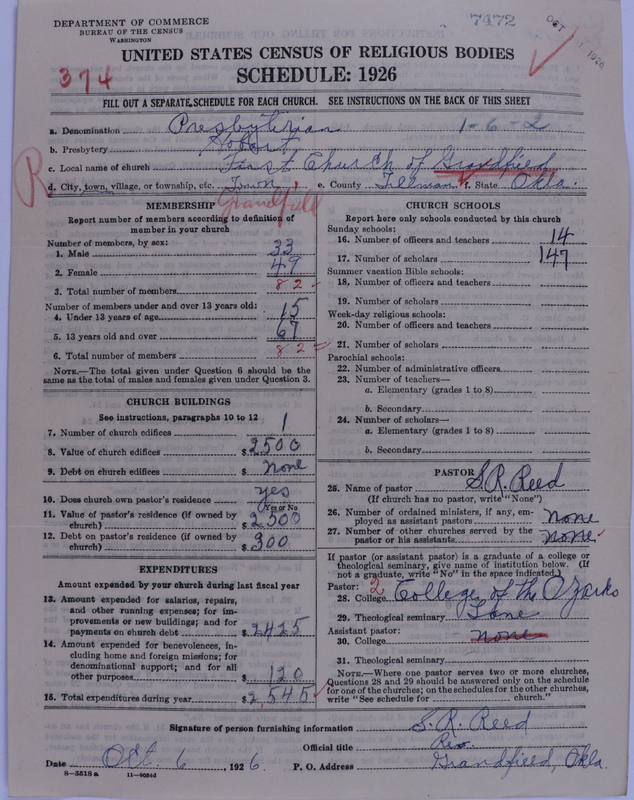 DEPARTMENT OF COMMERCE
BUREAU OF THE CENSUS
WASHINGTON
7472
OCT 1926
374
UNITED STATES CENSUS OF RELIGIOUS BODIES
SCHEDULE: 1926
FILL OUT A SEPARATE SCHEDULE FOR EACH CHURCH. SEE INSTRUCTIONS ON THE BACK OF THIS SHEET
a. Denomination Presbyterian 1-6-2
b. Presbytery Hobart
c. Local name of church First Church of Grandfield
R d. City, town, village, or township, etc. Town, e. County Tillman f. State Okla.
Grandfield
MEMBERSHIP
Report number of members according to definition of member in your church
Number of members, by sex:
1. Male 33
2. Female 49
3. Total number of members 82
Number of members under and over 13 years old:
4. Under 13 years of age 15
5. 13 years old and over 67
6. Total number of members 82
NOTE.—The total given under Question 6 should be
same as the total of males and females given under Question 3.
CHURCH BUILDINGS
See instructions, paragraphs 10 to 12
7. Number of church edifices 1
8. Value of church edifices $ 2500
9. Debt on church edifices $ none
10. Does church own pastor's residence yes
(Yes or No)
11. Value of pastor's residence (if owned by
church) $ 2500
12. Debt on pastor's residence (if owned by
church) $ 300
EXPENDITURES
Amount expended by your church during last fiscal year
13. Amount expended for salaries, repairs,
and other running expenses; for im-
provements or new buildings; and for
payments on church debt $ 2425
14. Amount expended for benevolences, in-
cluding home and foreign missions; for
denominational support; and for all
other purposes $ 120
15. Total expenditures during year $ 2,545
CHURCH SCHOOLS
Report here only schools conducted by this church
Sunday schools:
16. Number of officers and teachers 14
17. Number of scholars 147
Summer vacation Bible schools:
18. Number of officers and teachers
19. Number of scholars
Week-day religious schools:
20. Number of officers and teachers
21. Number of scholars
Parochial schools:
22. Number of administrative officers
23. Number of teachers—
a. Elementary (grades 1 to 8)
b. Secondary
24. Number of scholars—
a. Elementary (grades 1 to 8)
b. Secondary
PASTOR
25. Name of pastor S. R. Reed
(If church has no pastor, write "None")
26. Number of ordained ministers, if any, em-
ployed as assistant pastors none
27. Number of other churches served by the
pastor or his assistants none
If pastor (or assistant pastor) is a graduate of a college or
theological seminary, give name of institution below. (If
not a graduate, write "No" in the space indicated.)
Pastor: 2
28. College College of the Ozarks
29. Theological seminary Lane
Assistant pastor:
30. College none
31. Theological seminary
NOTE.—Where one pastor serves two or more churches,
Questions 28 and 29 should be answered only on the schedule
for one of the churches; on the schedules for the other churches,
write "See schedule for ........ church."
Signature of person furnishing information S. R. Reed
Official title Rev.
Date Oct. 6, 1926 P. O. Address Grandfield, Okla.
8—5518 a